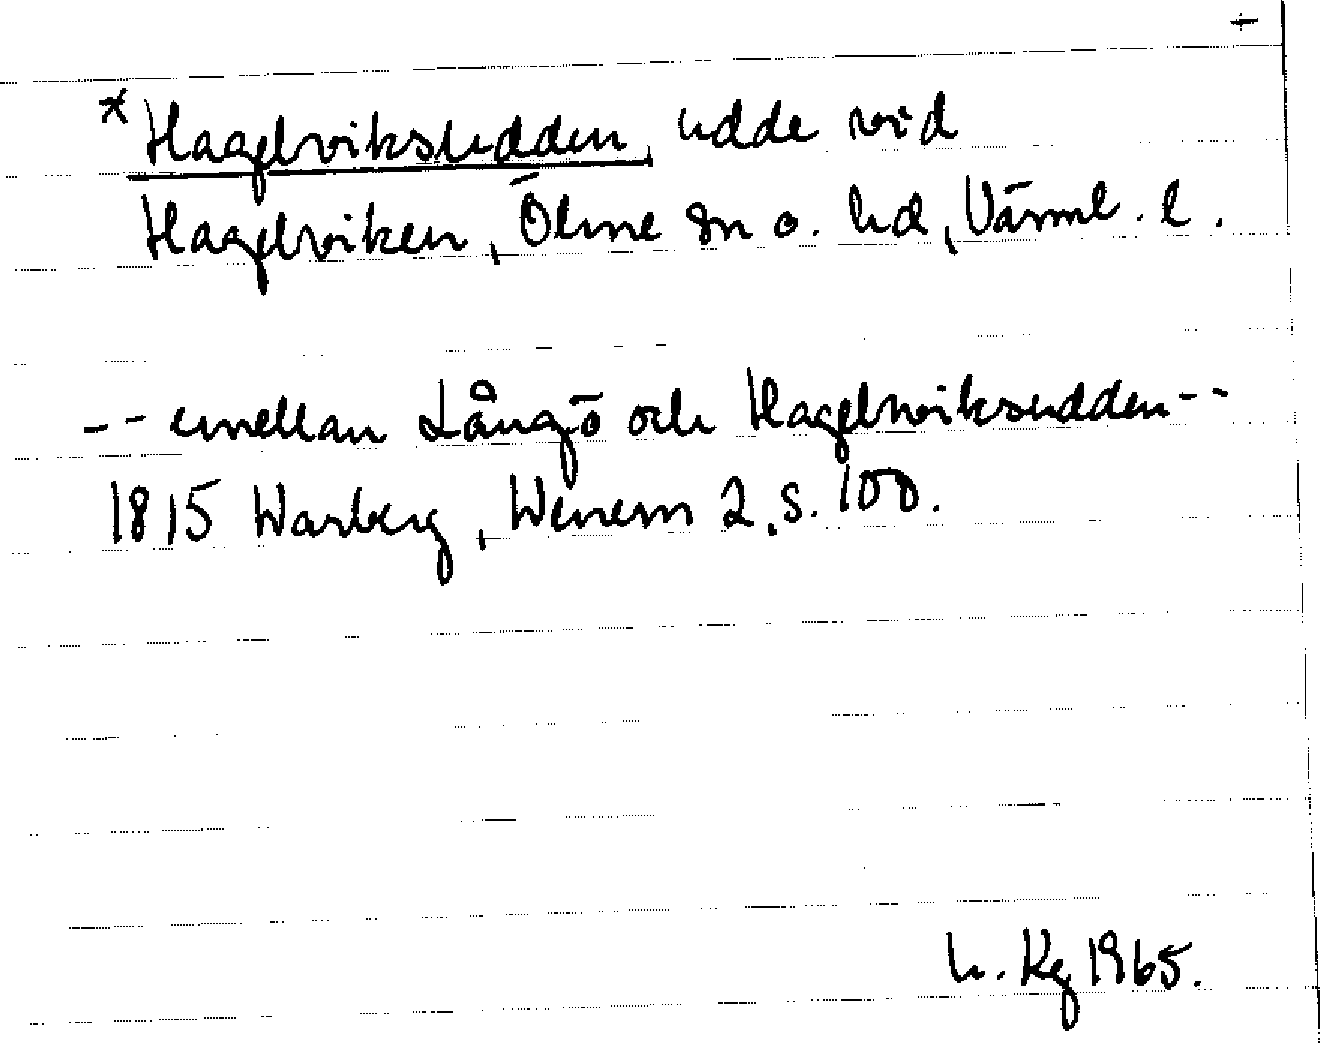 +
*Hagelviksudden, udde vid
Hagelviken, Ölme sn o. hd, Värml. l.
-- emellan Långö och Hagelwiksudden --
1815 Warberg, Wenern 2, s. 100.
h. Kg 1965.